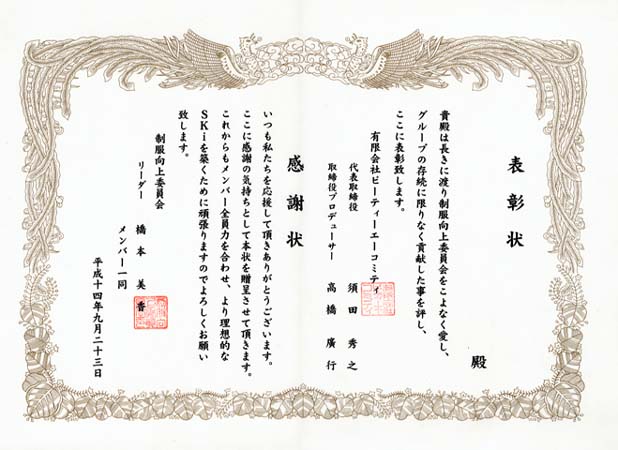 表彰状
殿
貴殿は長きに渡り制服向上委員会をこよなく愛し、
グループの存続に限りなく貢献した事を評し、
ここに表彰致します。
有限会社ピーティーエーコミティ
代表取締役 須田秀之
取締役プロデューサー 高橋廣行
感謝状
いつも私たちを応援して頂きありがとうございます。
ここに感謝の気持ちとして本状を贈呈させて頂きます。
これからもメンバー全員力を合わせ、より理想的な
SKiを築くために頑張りますのでよろしくお願い
致します。
制服向上委員会
リーダー 橋本美香
メンバー一同
平成十四年九月二十三日